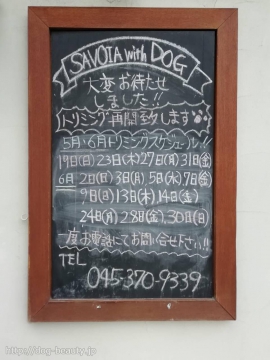 SAVOIA with DOG
大変お待たせ
しました!!
トリミング再開致します
5月・6月トリミングスケジュール!!
19日(日)23日(木)27日(月)31日(金)
6月 2日(日)3日(月)5日(水)7日(金)
9日(日)13日(木)14日(金)
24日(月)28日(金)30日(日)
一度お電話にてお問い合せ下さい!!
TEL
045-370-9339
https://dog-beauty.jp